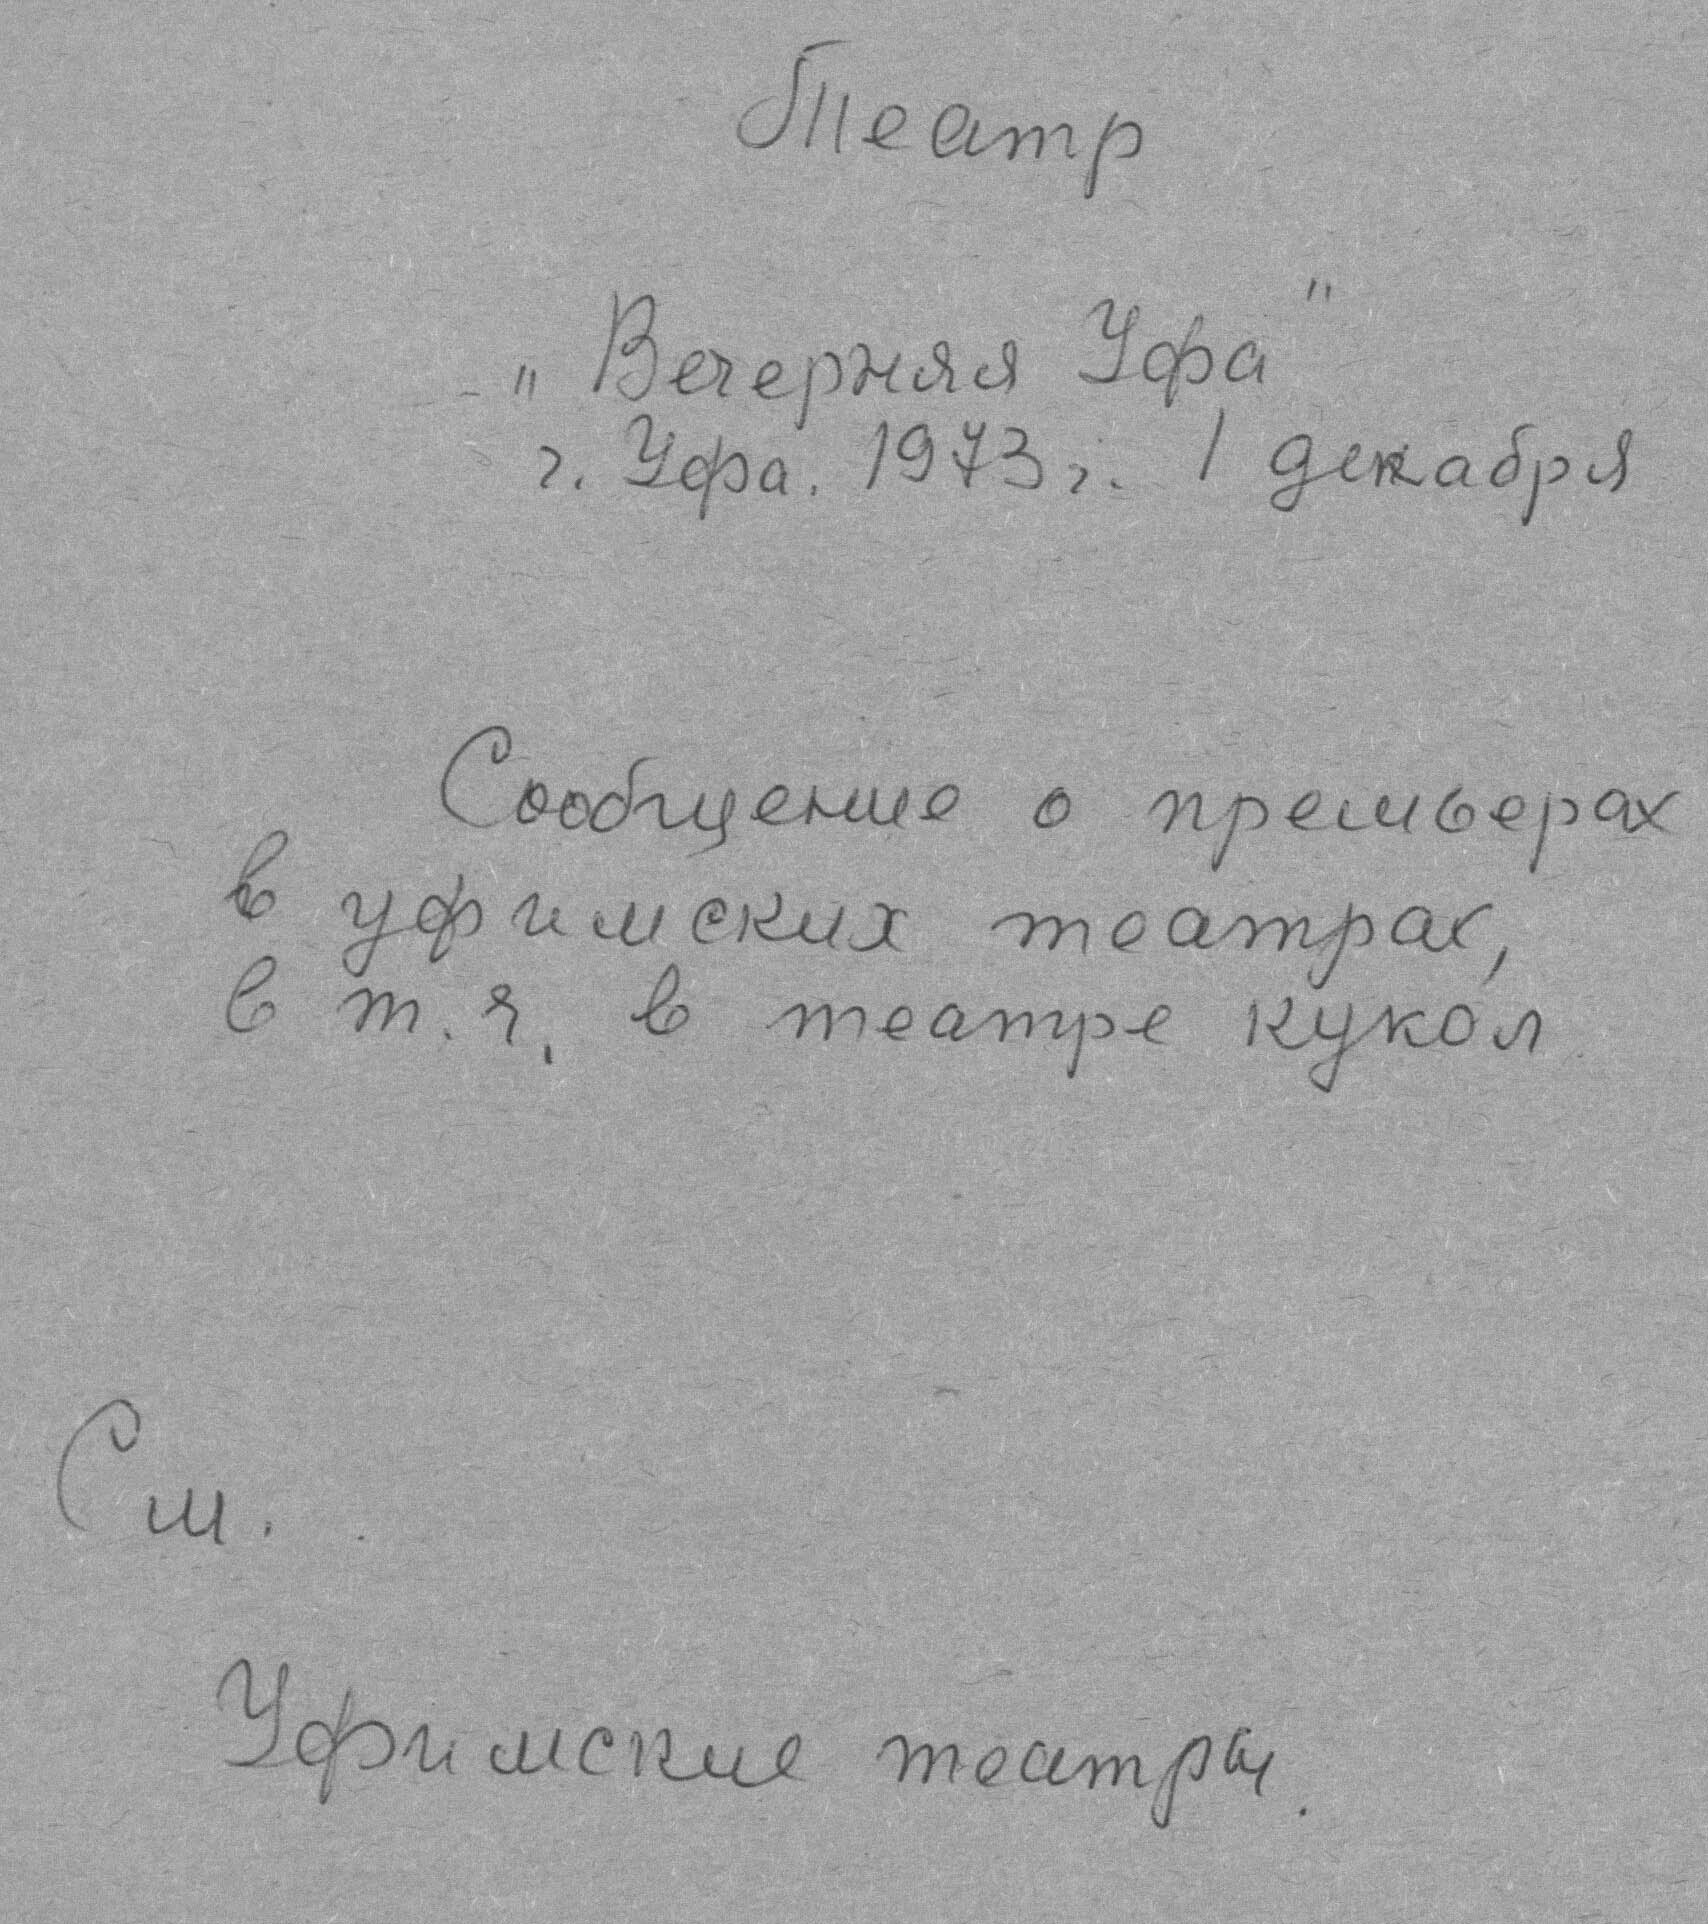 Театр
„Вечерняя Уфа"
г. Уфа. 1973 г. 1 декабря
Сообщение о премьерах
в уфимских театрах,
в т.ч. в театре кукол
См.
Уфимские театры.